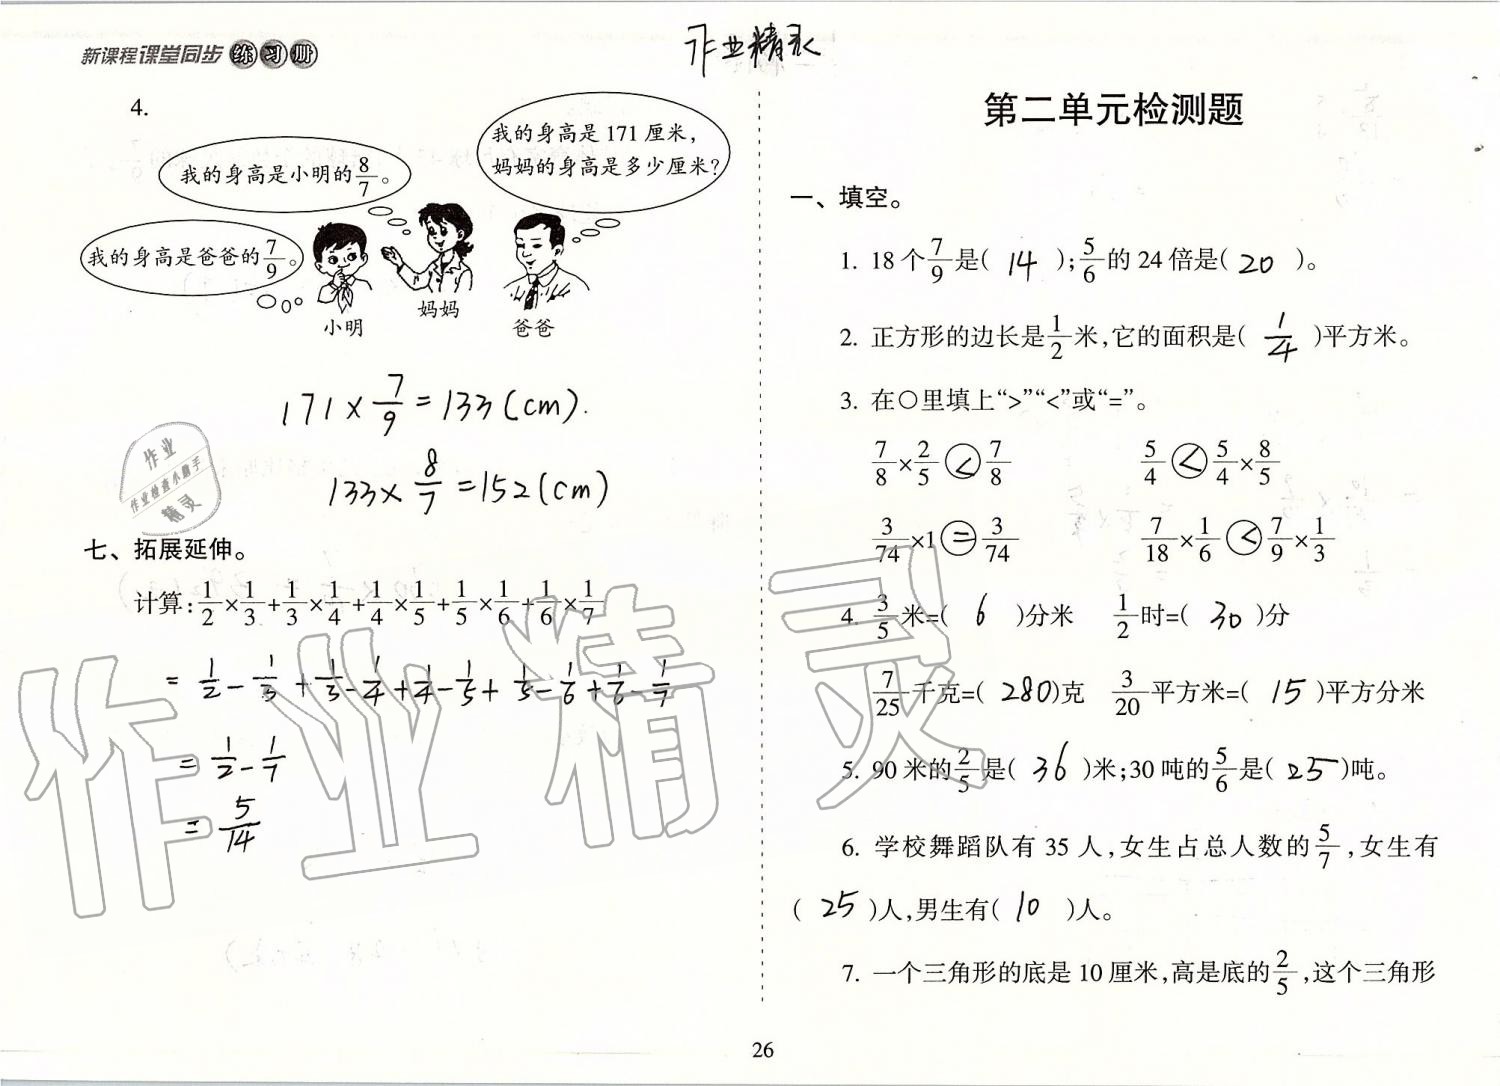 新课程课堂同步练习册
作业精灵
4.
我的身高是 171 厘米，
妈妈的身高是多少厘米？
我的身高是小明的8/7。
我的身高是爸爸的7/9。
小明
妈妈
爸爸
171×7/9=133(cm).
133×8/7=152(cm)
作业
作业检查小助手
精灵
七、拓展延伸。
计算:1/2×1/3+1/3×1/4+1/4×1/5+1/5×1/6+1/6×1/7
=1/2-1/3+1/3-1/4+1/4-1/5+1/5-1/6+1/6-1/7
=1/2-1/7
=5/14
作业精灵
第二单元检测题
一、填空。
1. 18个7/9是( 14 );5/6的24倍是( 20 )。
2. 正方形的边长是1/2米,它的面积是( 1/4 )平方米。
3. 在○里填上“>”“<”或“=”。
7/8×2/5 < 7/8 5/4 < 5/4×8/5
3/74×1 = 3/74 7/18×1/6 < 7/9×1/3
4. 3/5米=( 6 )分米 1/2时=( 30 )分
7/25千克=( 280 )克 3/20平方米=( 15 )平方分米
5. 90米的2/5是( 36 )米;30吨的5/6是( 25 )吨。
6. 学校舞蹈队有35人,女生占总人数的5/7,女生有
( 25 )人,男生有( 10 )人。
7. 一个三角形的底是10厘米,高是底的2/5,这个三角形
26